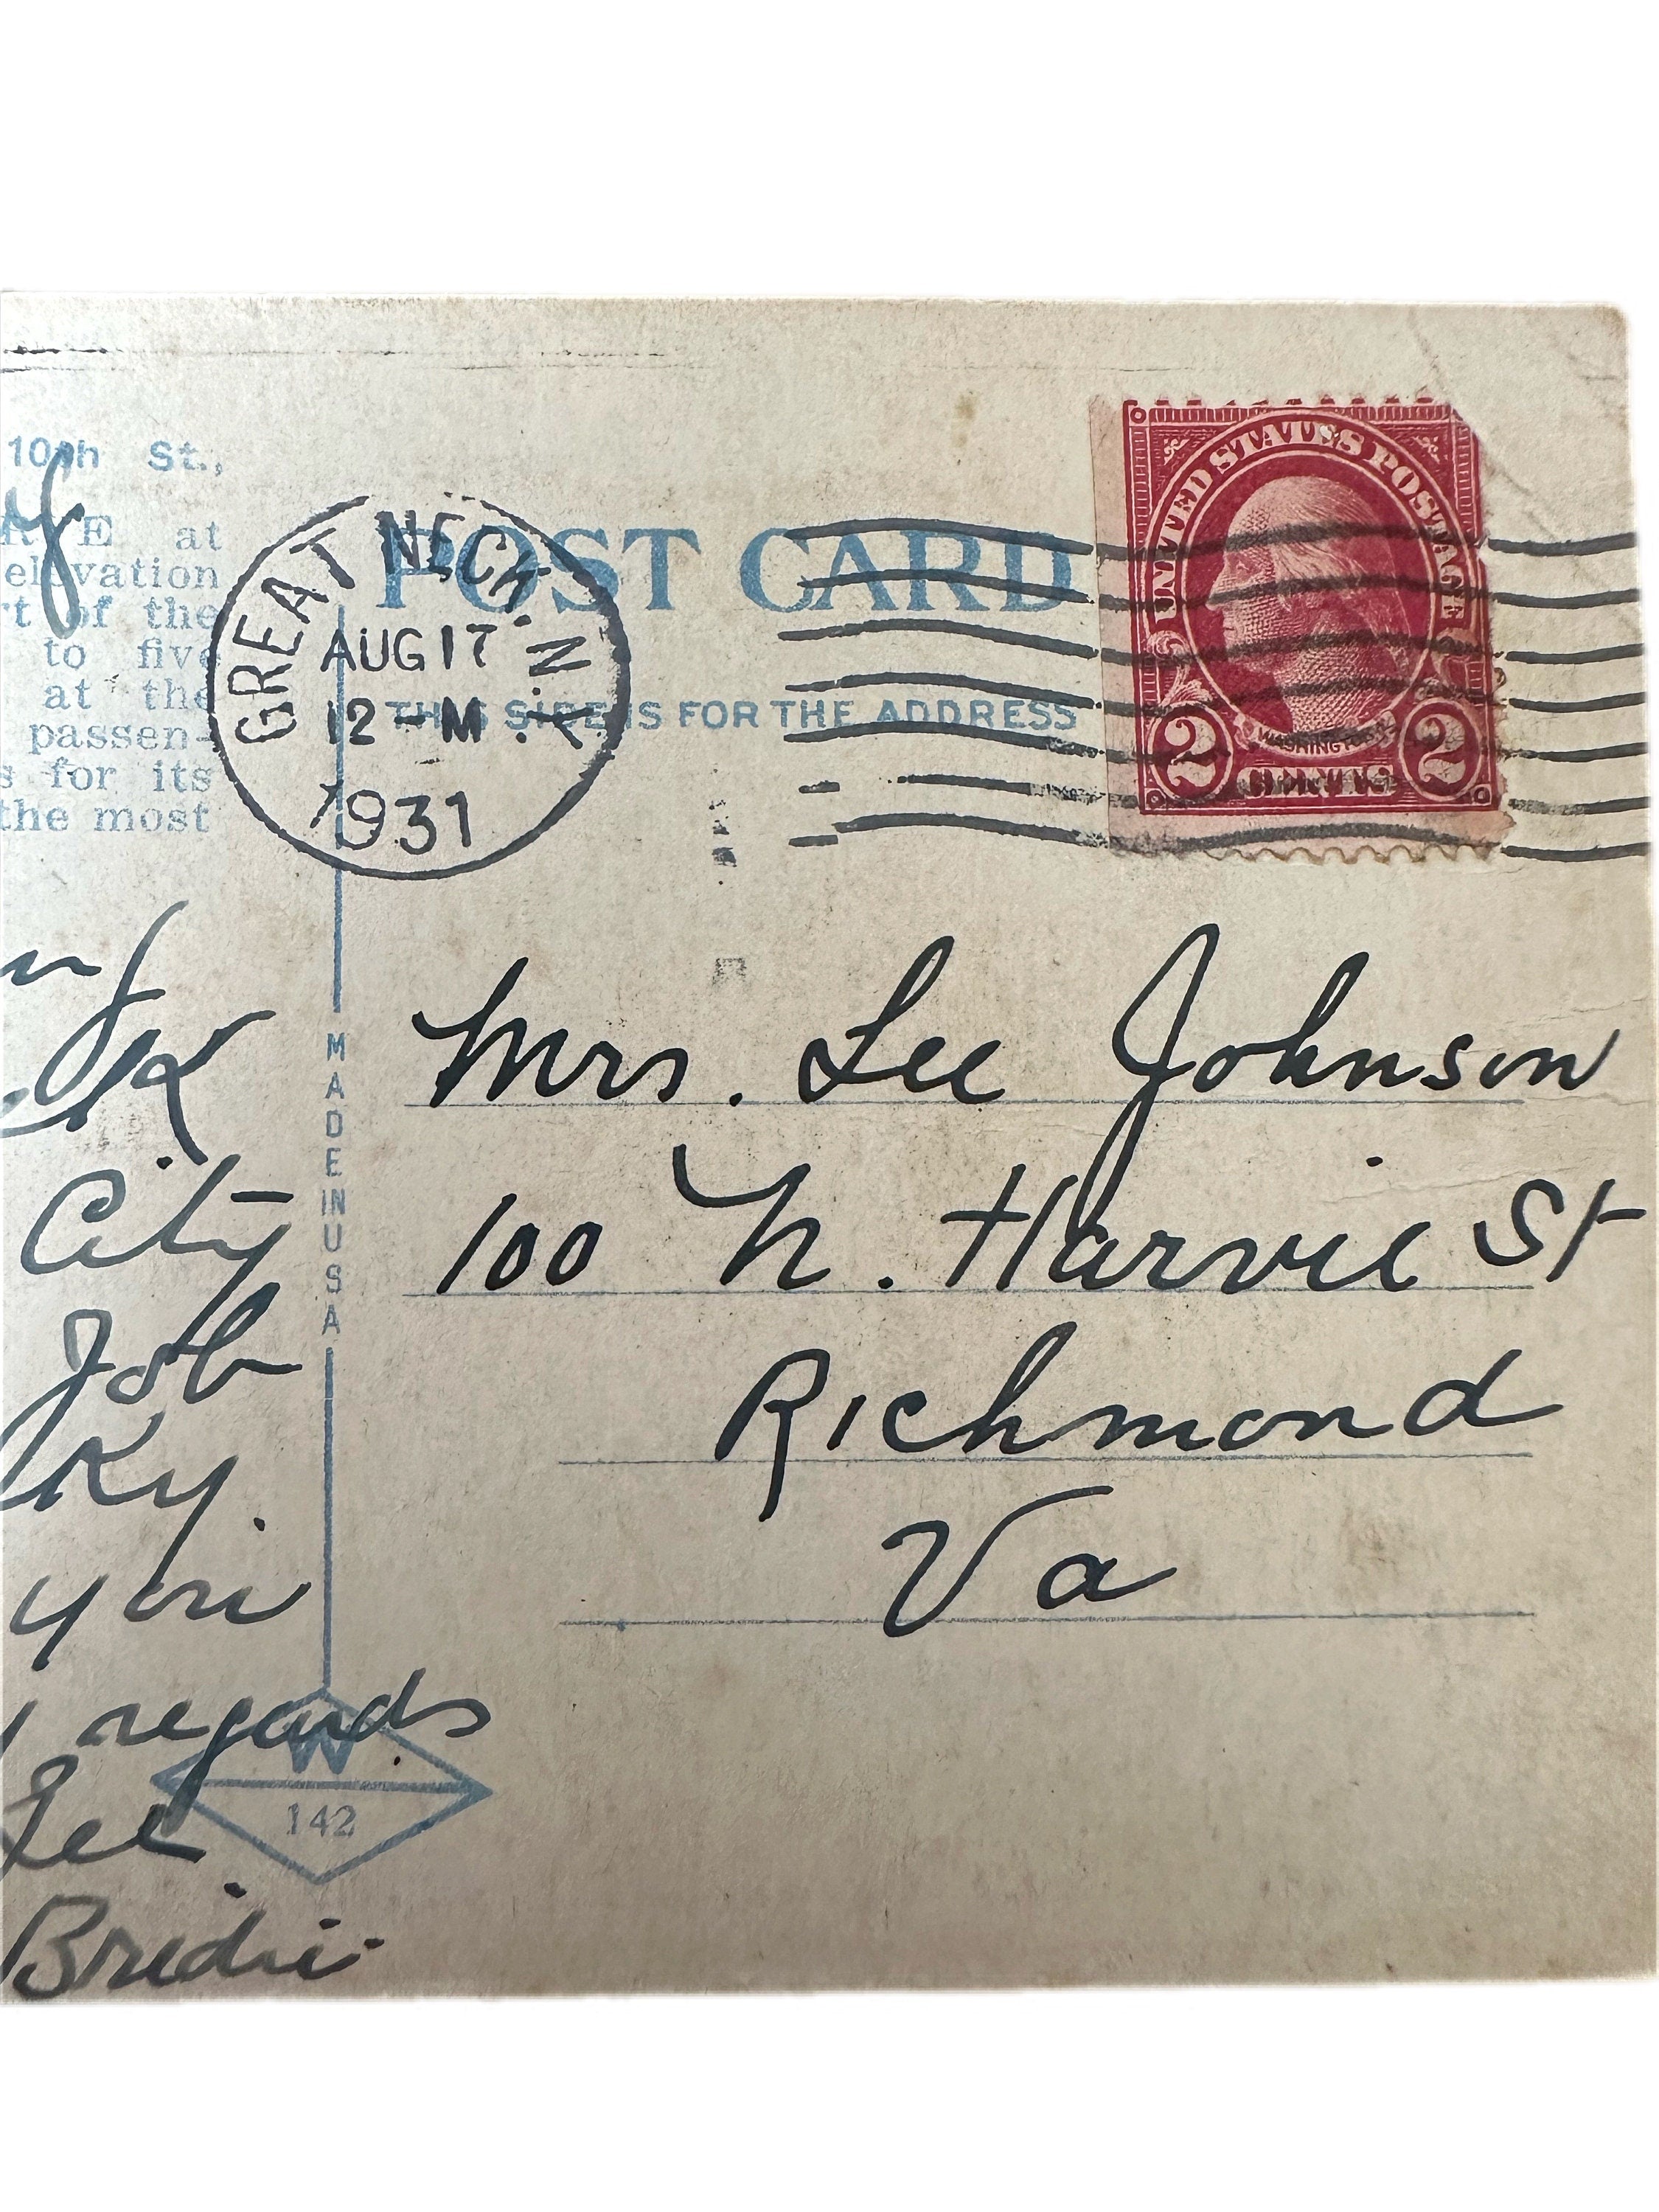 10th St.,
at
elevation
of the
to five
at the
passen-
s for its
the most
GREAT NECK. N.Y.
AUG 17
12 - M
1931
POST CARD
THIS SIDE IS FOR THE ADDRESS
UNITED STATES POSTAGE
WASHINGTON
2 2
MADE IN USA
City
Job
Ky
you
regards
Lee
Bridie
W
142
Mrs. Lee Johnson
100 N. Harvie St
Richmond
Va